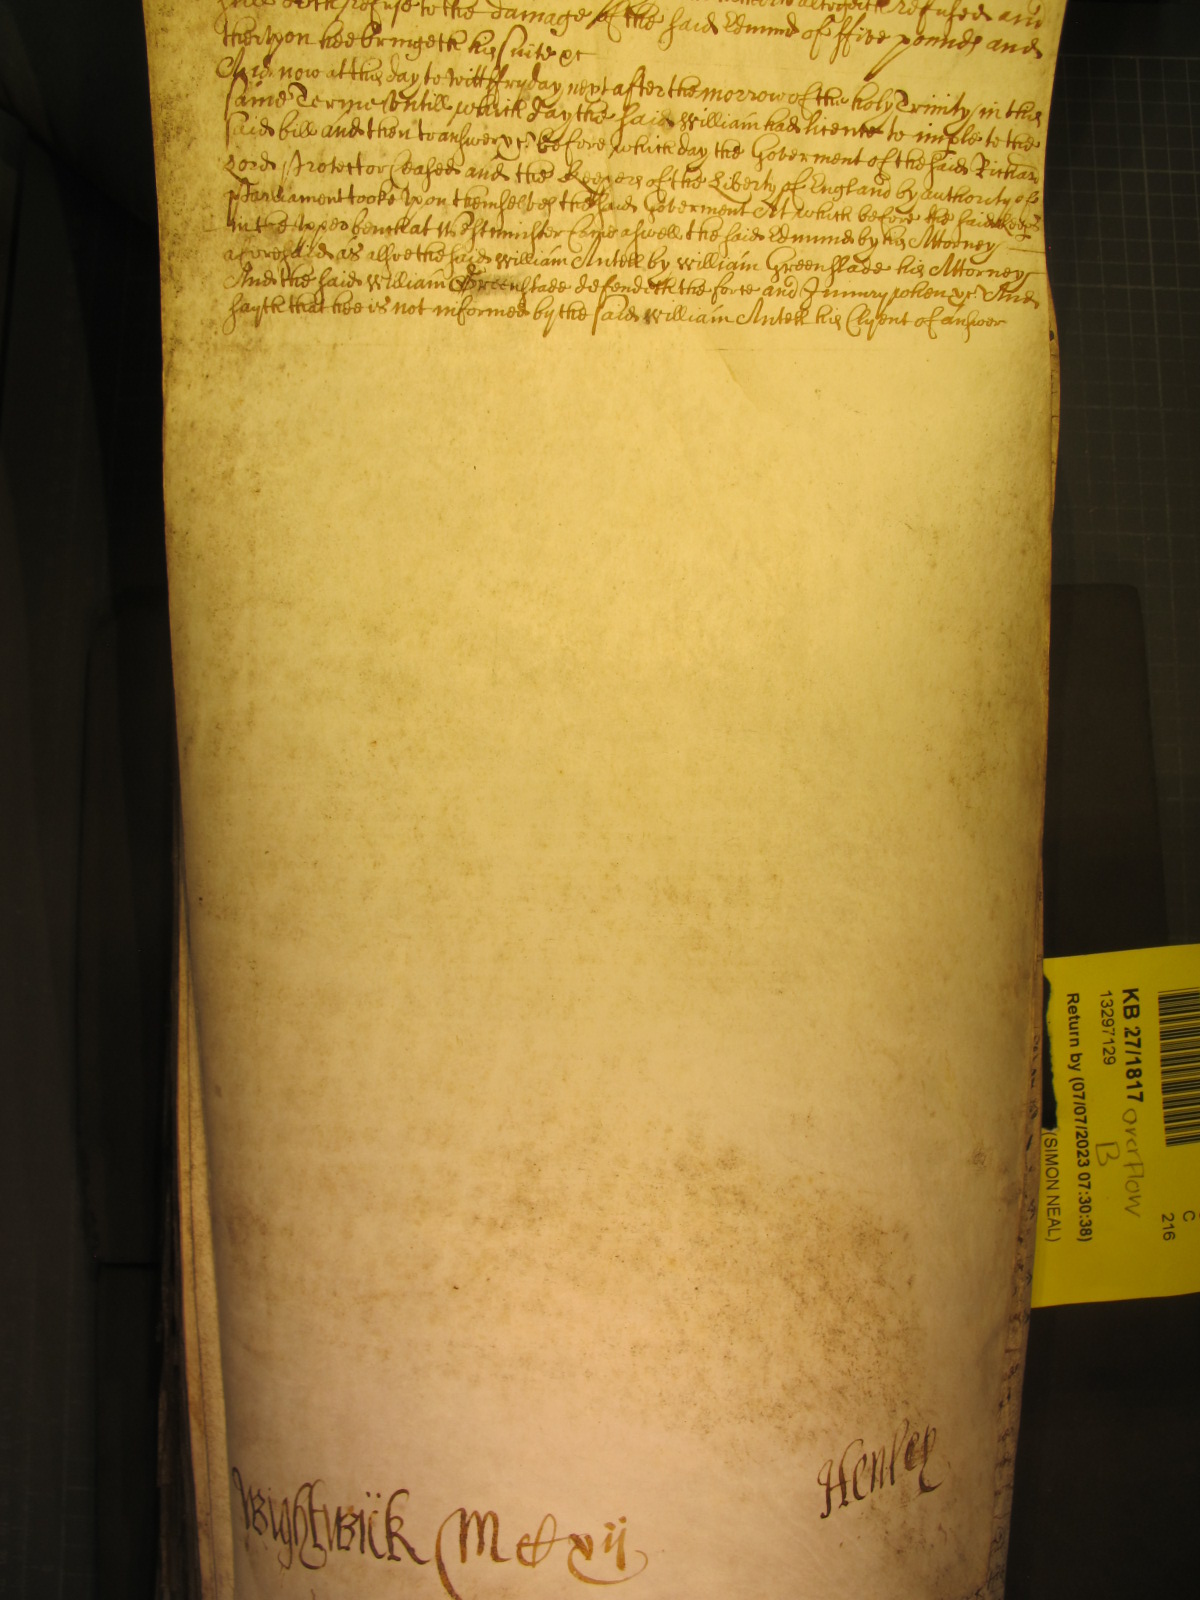 still doth refuse to the damage of the said Edmund of ffive pounds and
thereupon hee bringeth his suite &c
And now at this day to witt ffryday next after the morrow of the holy Trinity in this
same Terme Untill which day the said William had licence to imple to the
said bill and then to answer &c before which day the Goverment of the said Richard
Lord Protector ceased and the Keepers of the Liberty of England by authority of
Parliament tooke upon themselves the said Goverment At which before the said Keeps
in the upper bench at Westminster came aswell the said Edmund by his Attorney
aforesaid as alsoe the said William Antell by William Greenslade his Attorney
And the said William Greenslade defendeth the force and Iniury &c And
sayth that hee is not informed by the said William Antell his Clyent of answer
Henley
Wightwick M CC xij
KB 27/1817 overflow
B
13297129
Return by (07/07/2023 07:30:38)
(SIMON NEAL)
C
216